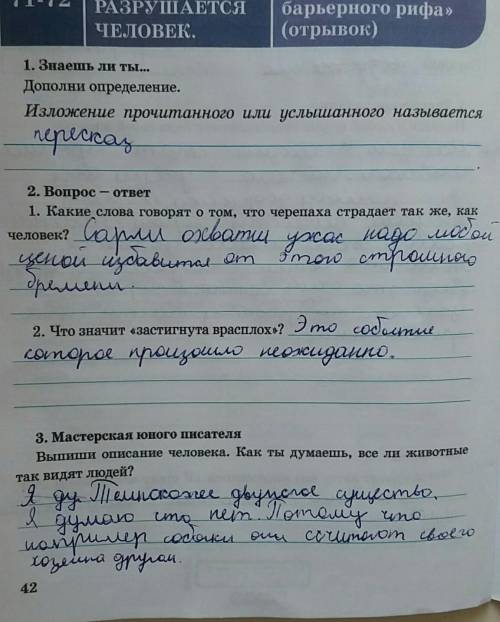 71-72
РАЗРУШАЕТСЯ
ЧЕЛОВЕК.
барьерного рифа»
(отрывок)
1. Знаешь ли ты...
Дополни определение.
Изложение прочитанного или услышанного называется
пересказ
2. Вопрос – ответ
1. Какие слова говорят о том, что черепаха страдает так же, как
человек? Карли охватил ужас надо любой
ценой избавится от этого страшного
бремени.
2. Что значит «застигнута врасплох»? Это событие
которое произошло неожиданно.
3. Мастерская юного писателя
Выпиши описание человека. Как ты думаешь, все ли животные
так видят людей?
Я ду. Темнокожее двуногое существо.
Я думаю что нет. Потому что
например собаки они считают своего
хозяина другом.
42